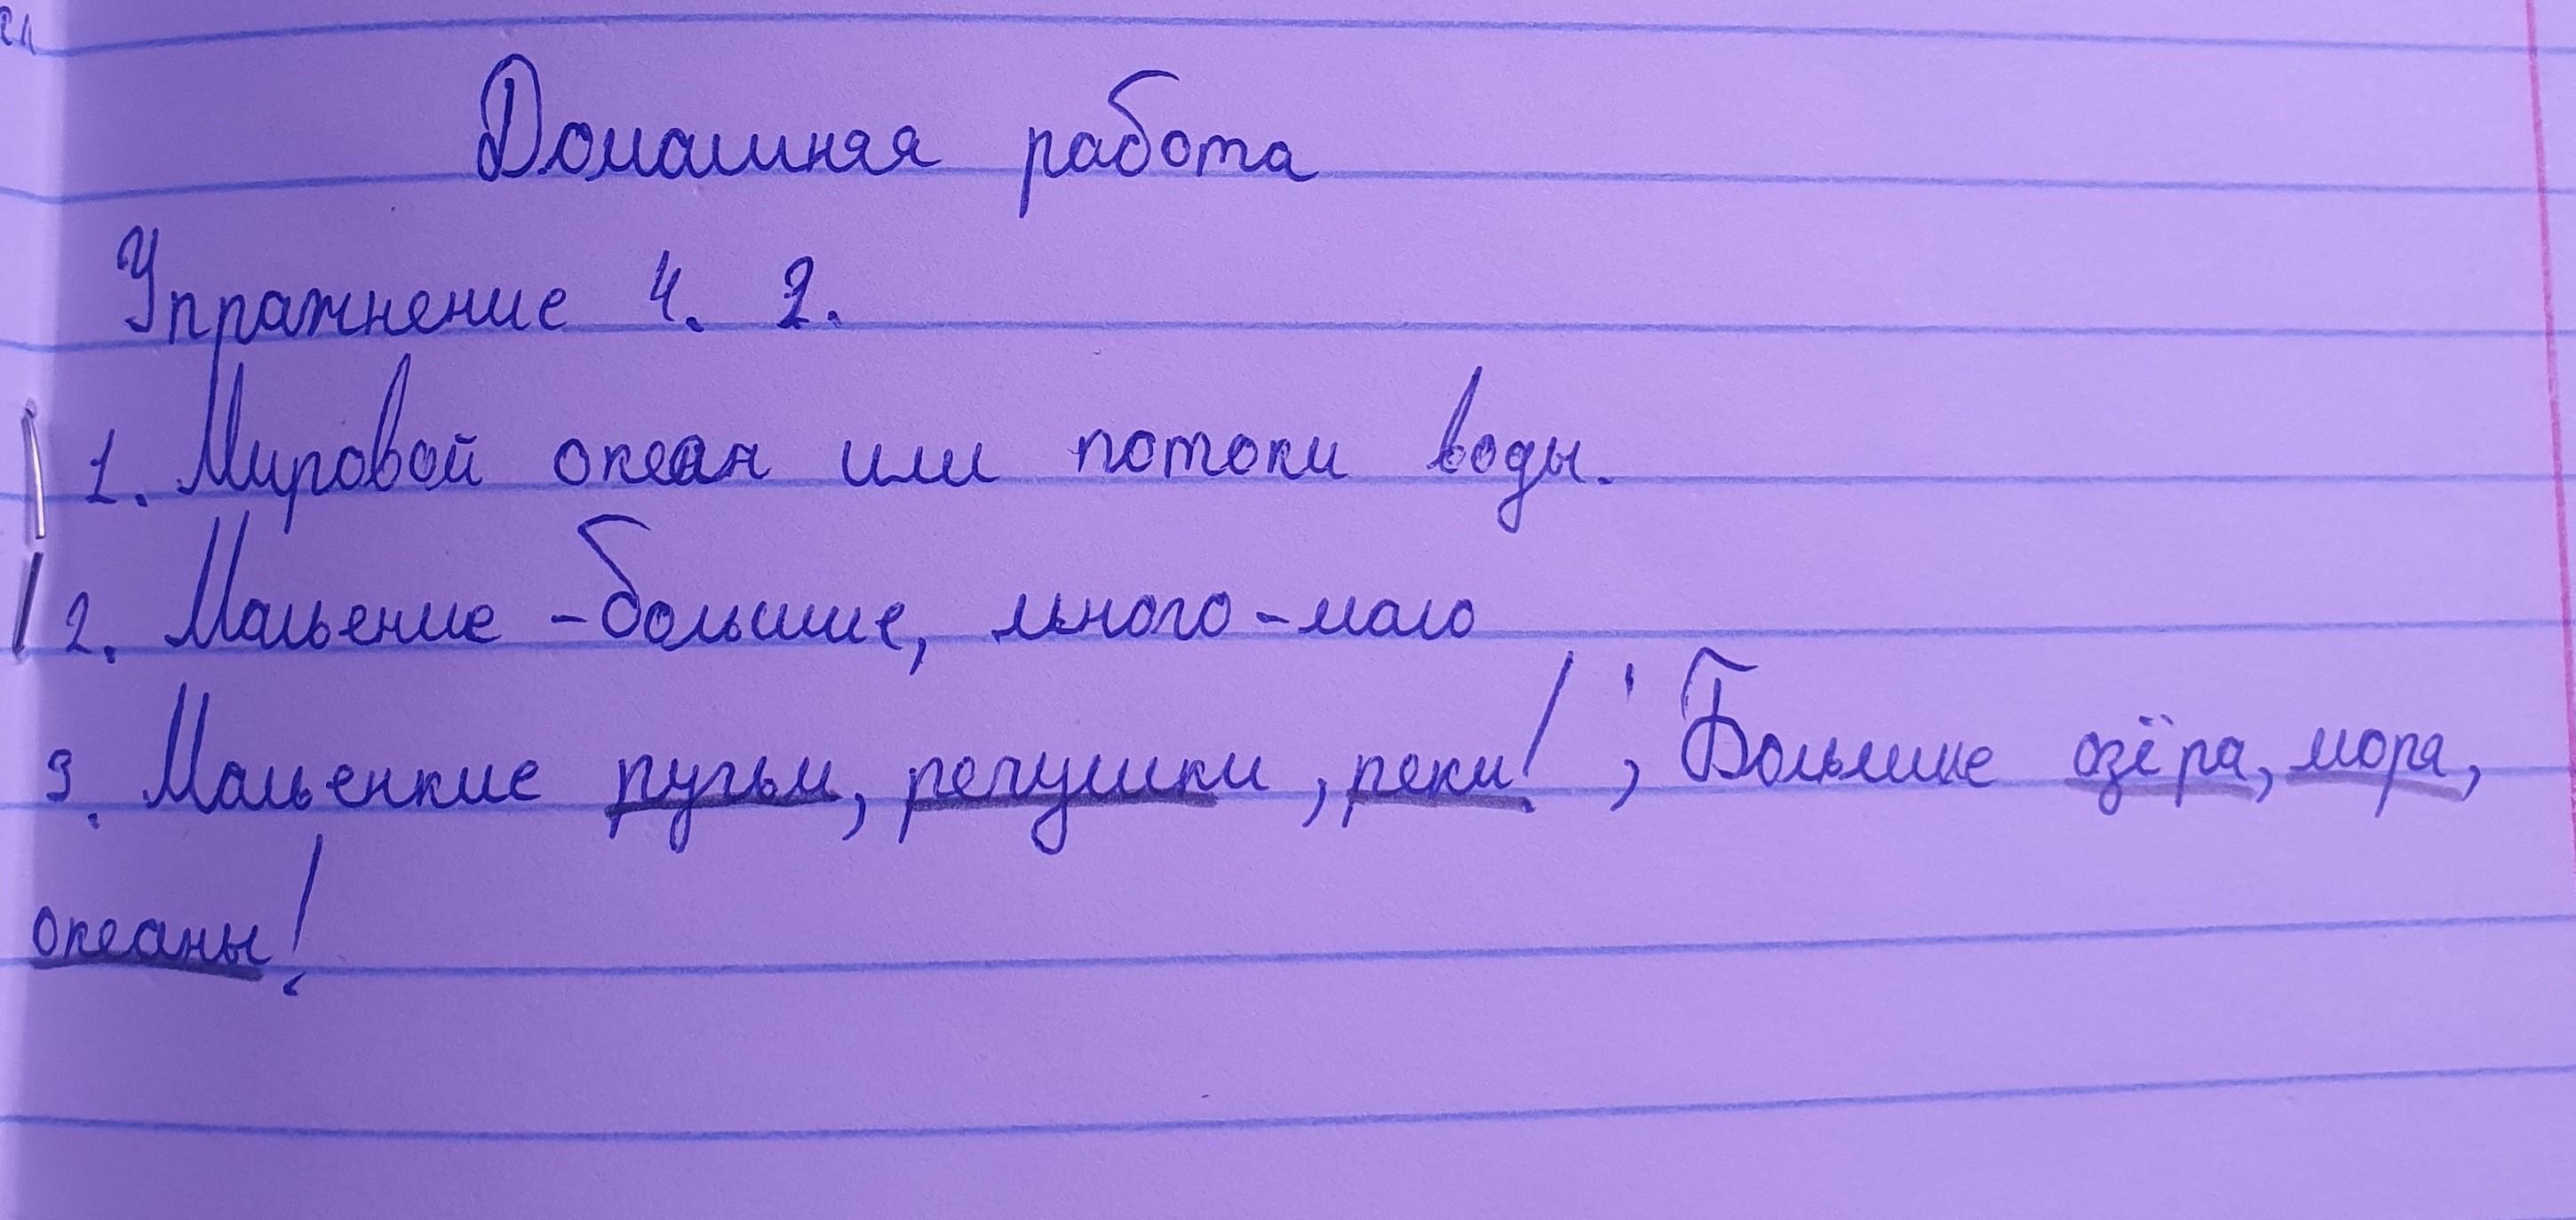 Домашняя работа
Упражнение 4. 2.
1. Мировой океан или потоки воды.
2. Мальение - большие, много - мало
3. Маленкие ручьи, речушки, реки! ; Большие озёра, мора,
океаны!